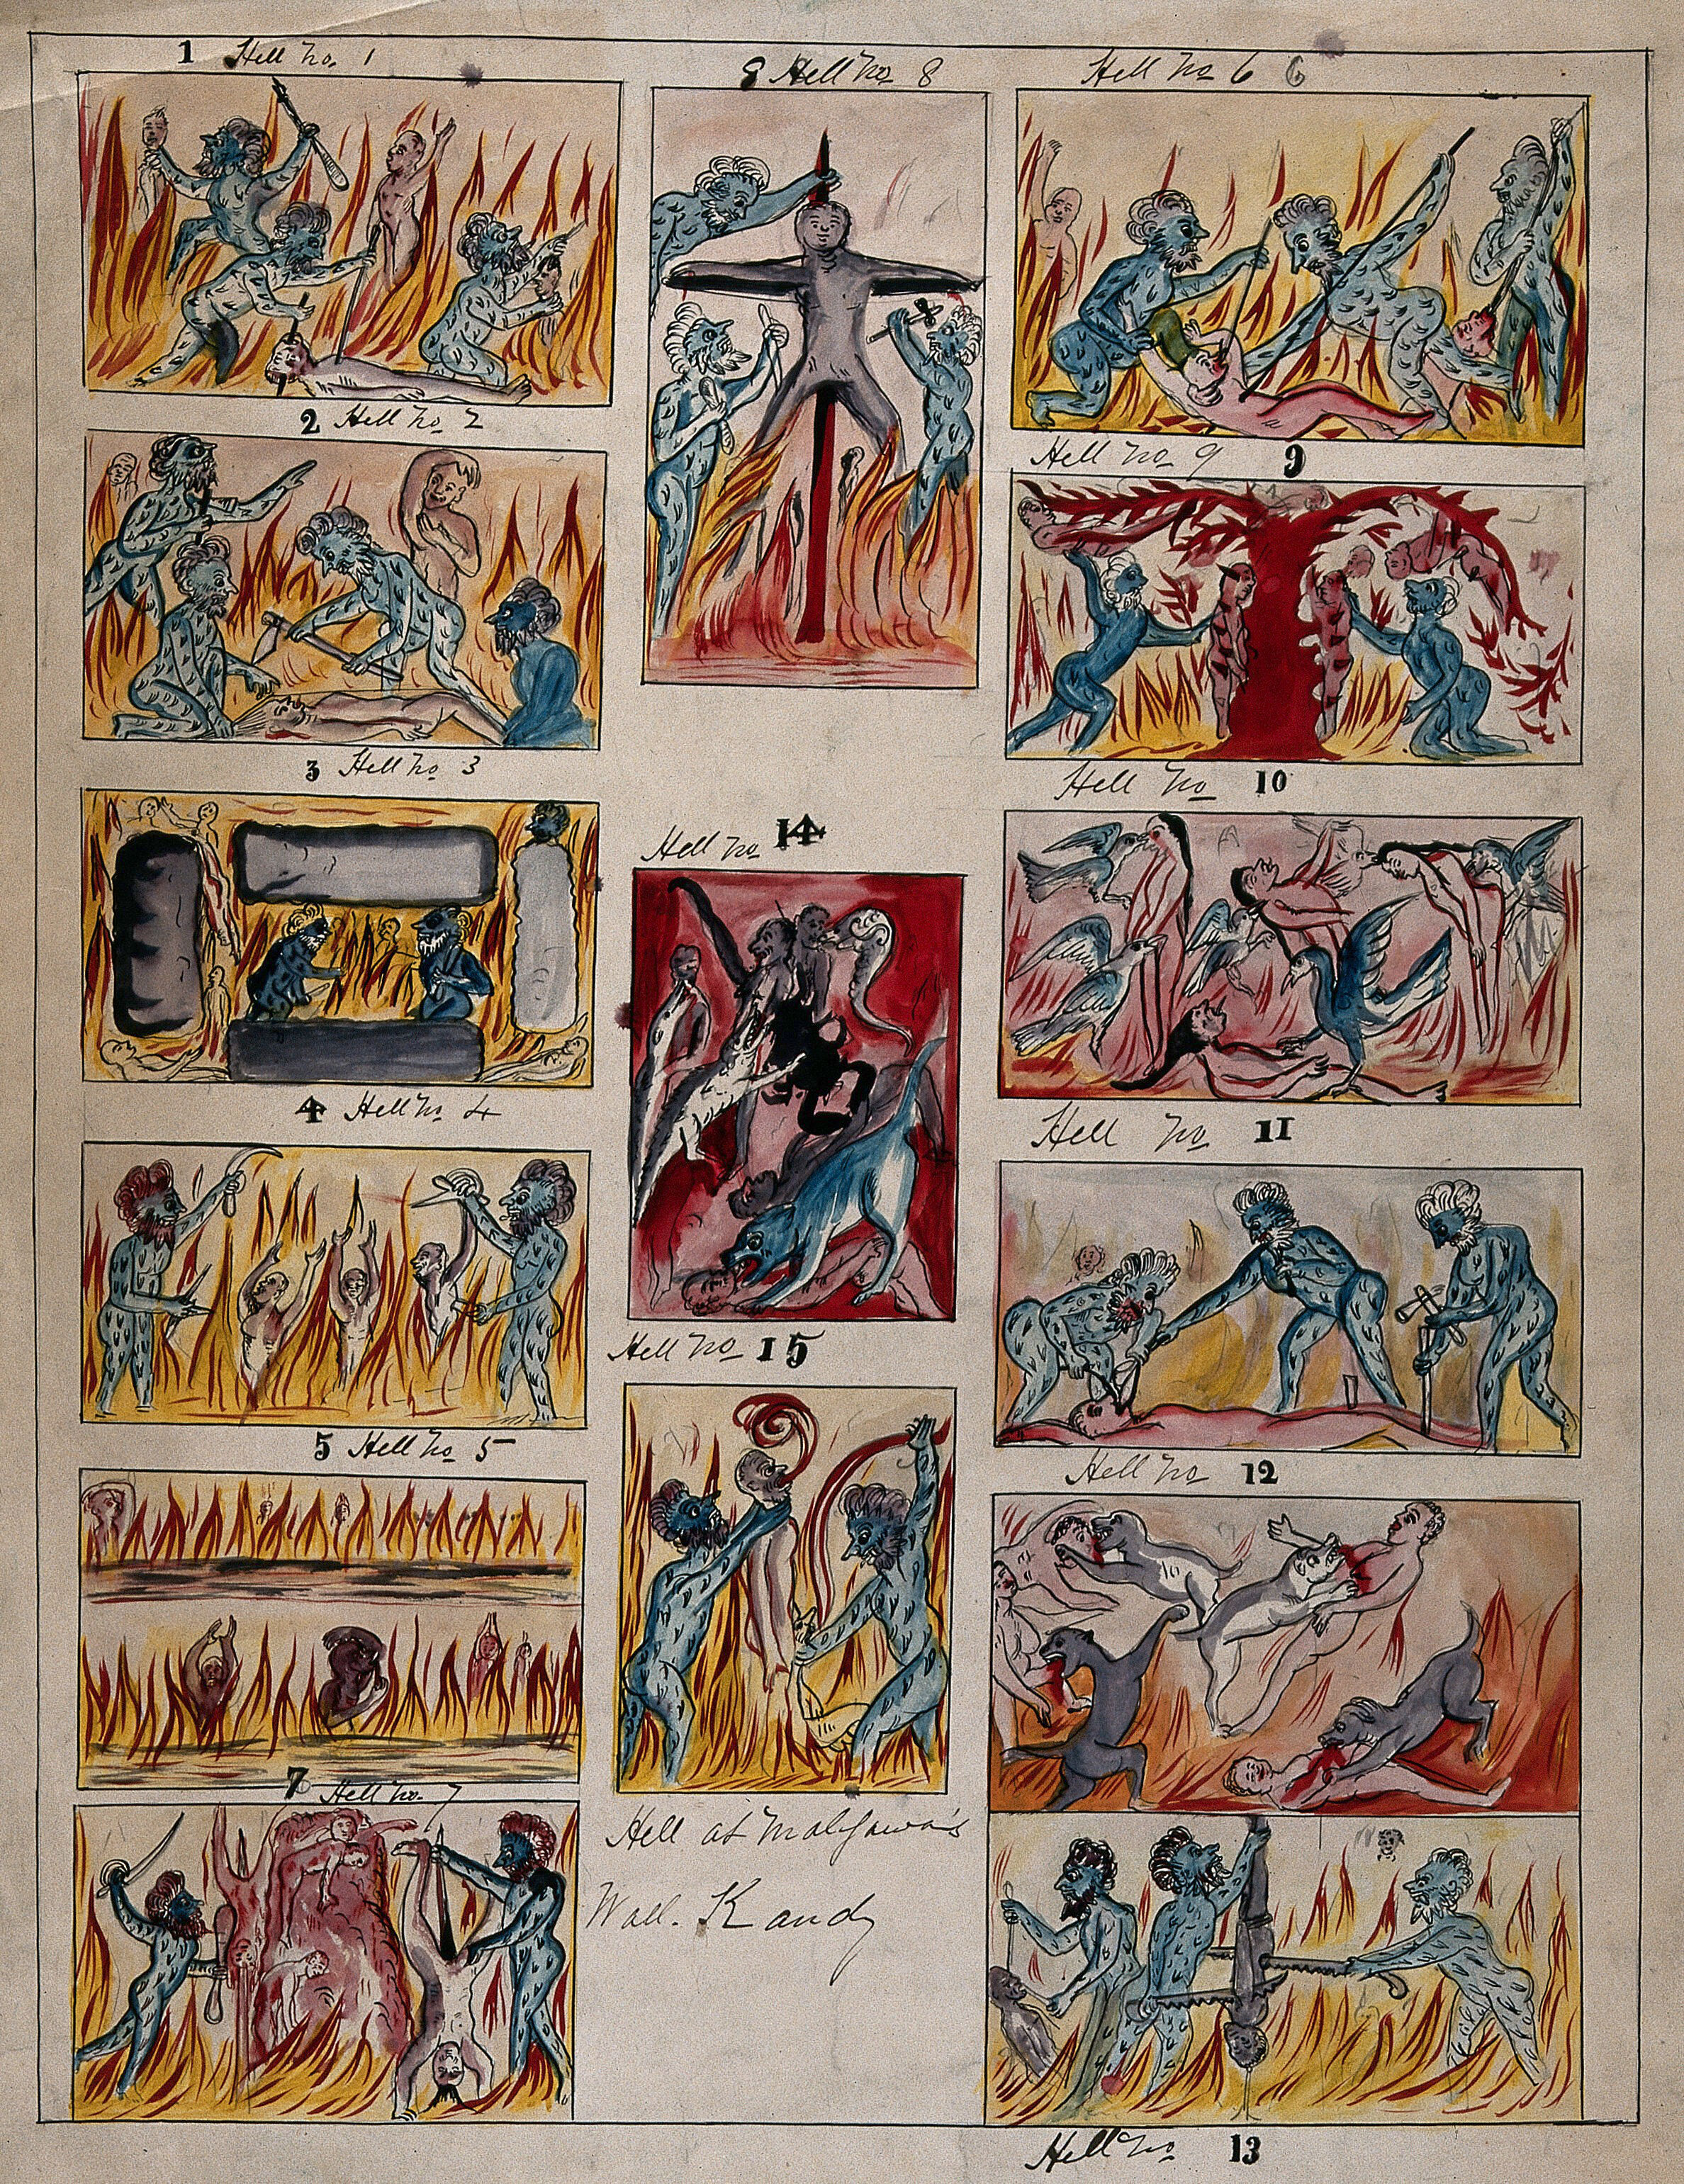 1 Hell no 1
2 Hell no 2
3 Hell no 3
4 Hell no 4
5 Hell no 5
7 Hell no 7
8 Hell no 8
Hell no 14
Hell no 15
Hell at Maligawa's
Wall. Kandy
Hell no 6 6
Hell no 9 9
Hell no 10
Hell no 11
Hell no 12
Hell no 13